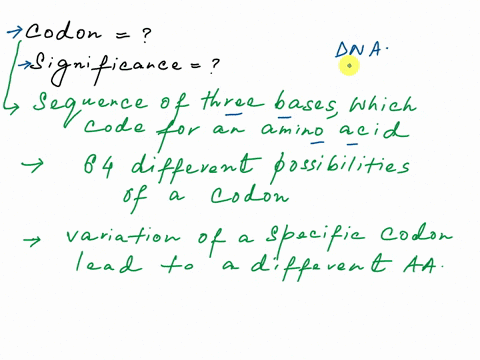 → Codon = ?
DNA.
→ Significance = ?
→ Sequence of three bases, which
code for an amino acid
→ 64 different possibilities
of a codon
→ variation of a specific codon
lead to a different AA.